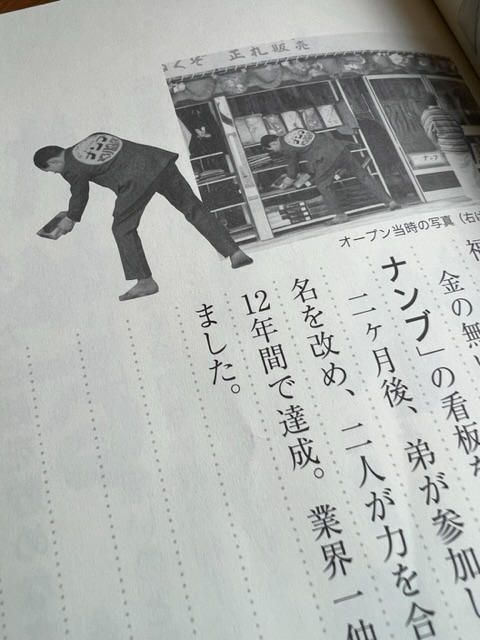 くぞ 正札販売
ナンブ
オープン当時の写真（右
金の無
ナンブ」の看板を
二ヶ月後、弟が参加し
名を改め、二人が力を合
12年間で達成。業界一
ました。